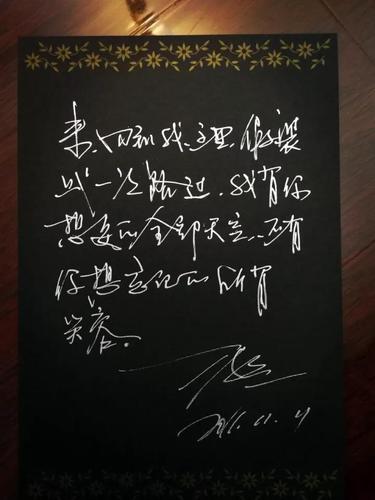 来,回到我这里,假装
以一次路过,我有你
想要的全部天空,还有
你想忘记的所有
笑容。
2016.11.4